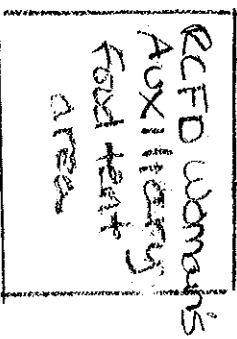 RCFD Woman's
Auxiliary
Food tent
area